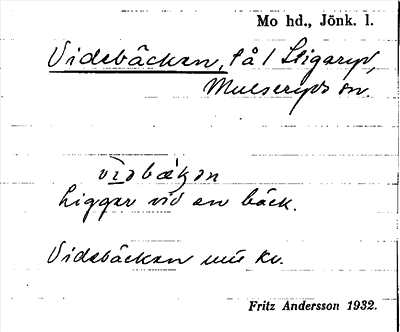 Mo hd., Jönk. l.
Videbäcken, få / Stigaryd,
Mulseryds sn.
Ligger vid en bäck.
Videbäcken
Fritz Andersson 1932.